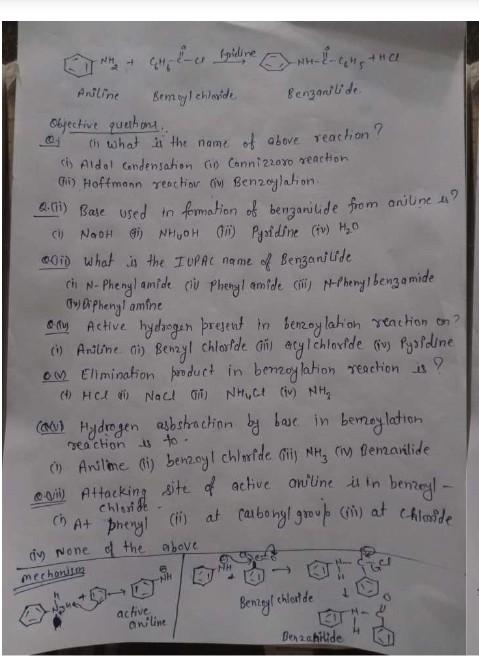 NH2 + C6H5-C-Cl Pyridine NH-C-C6H5 + HCl
Aniline Benzoyl chloride Benzanilide.
Objective questions:
(i) What is the name of above reaction?
(i) Aldol Condensation (ii) Cannizzoro reaction
(iii) Hoffmann reaction (iv) Benzoylation.
Q.(ii) Base used in formation of benzanilide from aniline is?
(i) NaOH (ii) NH4OH (iii) Pyridine (iv) H2O
Q(iii) What is the IUPAC name of Benzanilide
(i) N-Phenyl amide (ii) Phenyl amide (iii) N-Phenyl benzamide
(iv) Biphenyl amine
Q(iv) Active hydrogen present in benzoylation reaction on?
(i) Aniline (ii) Benzyl chloride (iii) acyl chloride (iv) Pyridine
Q(v) Elimination product in benzoylation reaction is?
(i) HCl (ii) NaCl (iii) NH4Cl (iv) NH2
(Q(vi) Hydrogen asbstraction by base in benzoylation
reaction is to.
(i) Aniline (ii) benzoyl chloride (iii) NH3 (iv) Benzanilide
Q.(vii) Attacking site of active aniline is in benzoyl-
chloride-
(i) At phenyl (ii) at Carbonyl group (iii) at chloride
(iv) None of the above
mechanism
active
aniline
Benzoyl chloride
Benzanilide